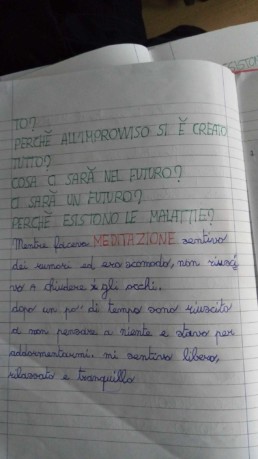 TO?
PERCHÈ ALL'IMPROVVISO SI È CREATO
TUTTO?
COSA CI SARÀ NEL FUTURO?
CI SARÀ UN FUTURO?
PERCHÈ ESISTONO LE MALATTIE?
Mentre facevo MEDITAZIONE sentivo
dei rumori ed ero scomodo, non riusci
vo a chiudere gli occhi.
dopo un po' di tempo sono riuscito
a non pensare a niente e stavo per
addormentarmi. mi sentivo libero,
rilassato e tranquillo